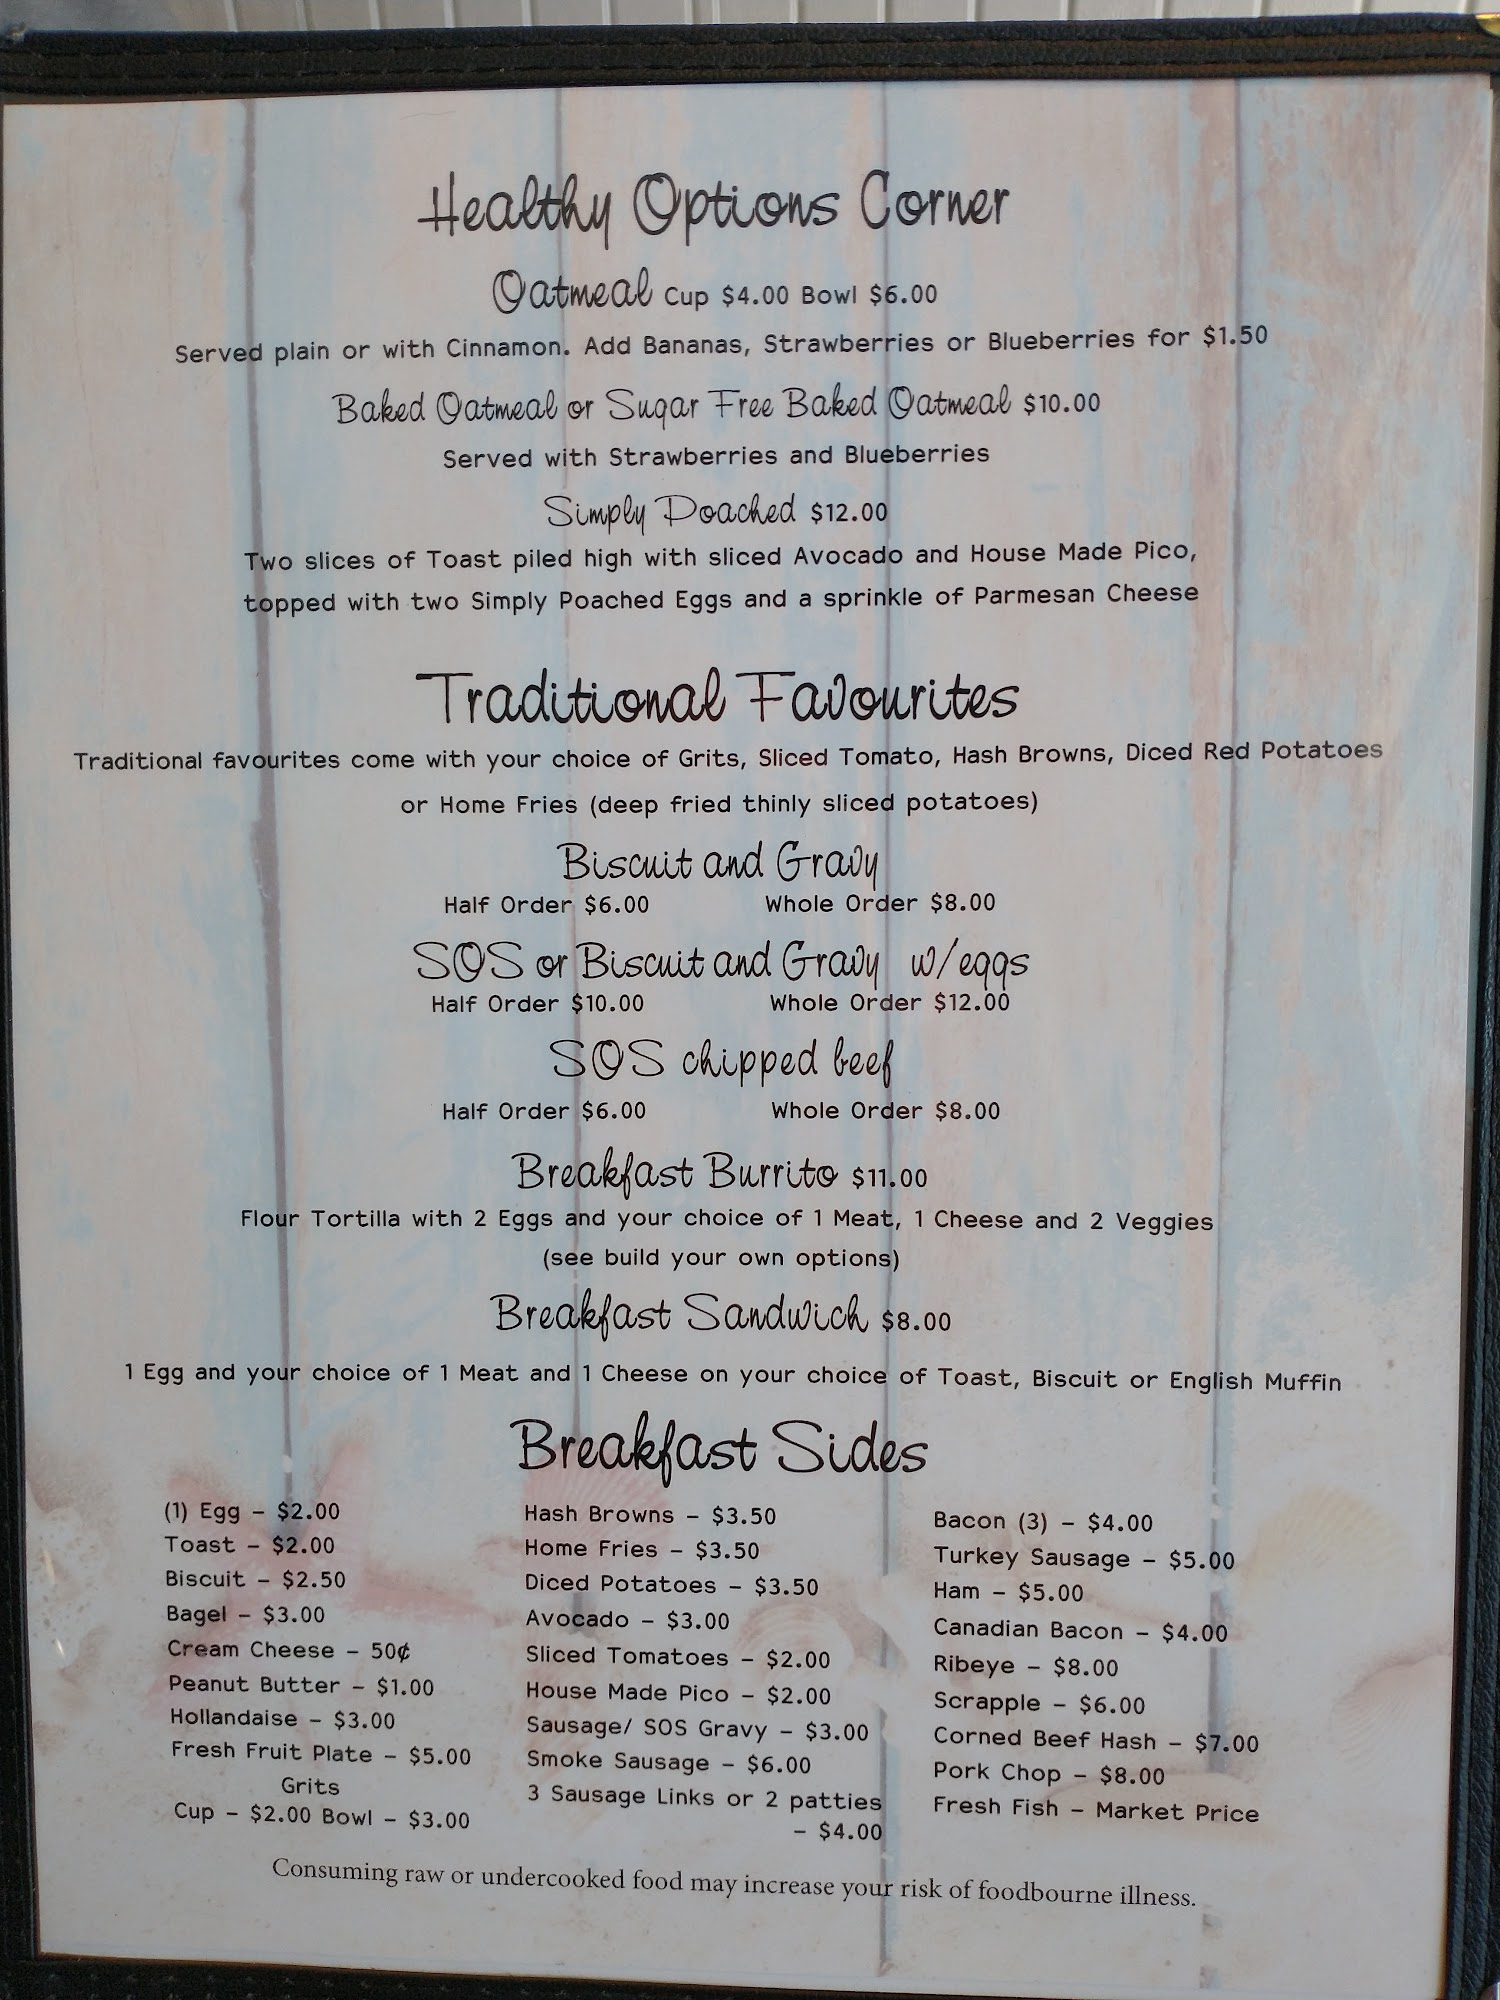 Healthy Options Corner
Oatmeal Cup $4.00 Bowl $6.00
Served plain or with Cinnamon. Add Bananas, Strawberries or Blueberries for $1.50
Baked Oatmeal or Sugar Free Baked Oatmeal $10.00
Served with Strawberries and Blueberries
Simply Poached $12.00
Two slices of Toast piled high with sliced Avocado and House Made Pico,
topped with two Simply Poached Eggs and a sprinkle of Parmesan Cheese
Traditional Favourites
Traditional favourites come with your choice of Grits, Sliced Tomato, Hash Browns, Diced Red Potatoes
or Home Fries (deep fried thinly sliced potatoes)
Biscuit and Gravy
Half Order $6.00 Whole Order $8.00
SOS or Biscuit and Gravy w/eggs
Half Order $10.00 Whole Order $12.00
SOS chipped beef
Half Order $6.00 Whole Order $8.00
Breakfast Burrito $11.00
Flour Tortilla with 2 Eggs and your choice of 1 Meat, 1 Cheese and 2 Veggies
(see build your own options)
Breakfast Sandwich $8.00
1 Egg and your choice of 1 Meat and 1 Cheese on your choice of Toast, Biscuit or English Muffin
Breakfast Sides
(1) Egg – $2.00
Toast – $2.00
Biscuit – $2.50
Bagel – $3.00
Cream Cheese – 50¢
Peanut Butter – $1.00
Hollandaise – $3.00
Fresh Fruit Plate – $5.00
Grits
Cup – $2.00 Bowl – $3.00
Hash Browns – $3.50
Home Fries – $3.50
Diced Potatoes – $3.50
Avocado – $3.00
Sliced Tomatoes – $2.00
House Made Pico – $2.00
Sausage/ SOS Gravy – $3.00
Smoke Sausage – $6.00
3 Sausage Links or 2 patties
– $4.00
Bacon (3) – $4.00
Turkey Sausage – $5.00
Ham – $5.00
Canadian Bacon – $4.00
Ribeye – $8.00
Scrapple – $6.00
Corned Beef Hash – $7.00
Pork Chop – $8.00
Fresh Fish – Market Price
Consuming raw or undercooked food may increase your risk of foodbourne illness.